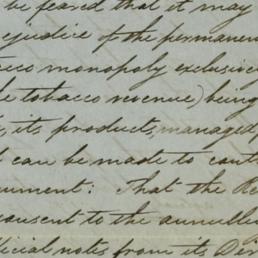 be feared that it may
ejudice of the permanen
cco monopoly exclusiv
e tobacco revenue) being
its products, managed
can be made to cont
ument: That the Re
consent to the annulle
ficial notes from its Dir